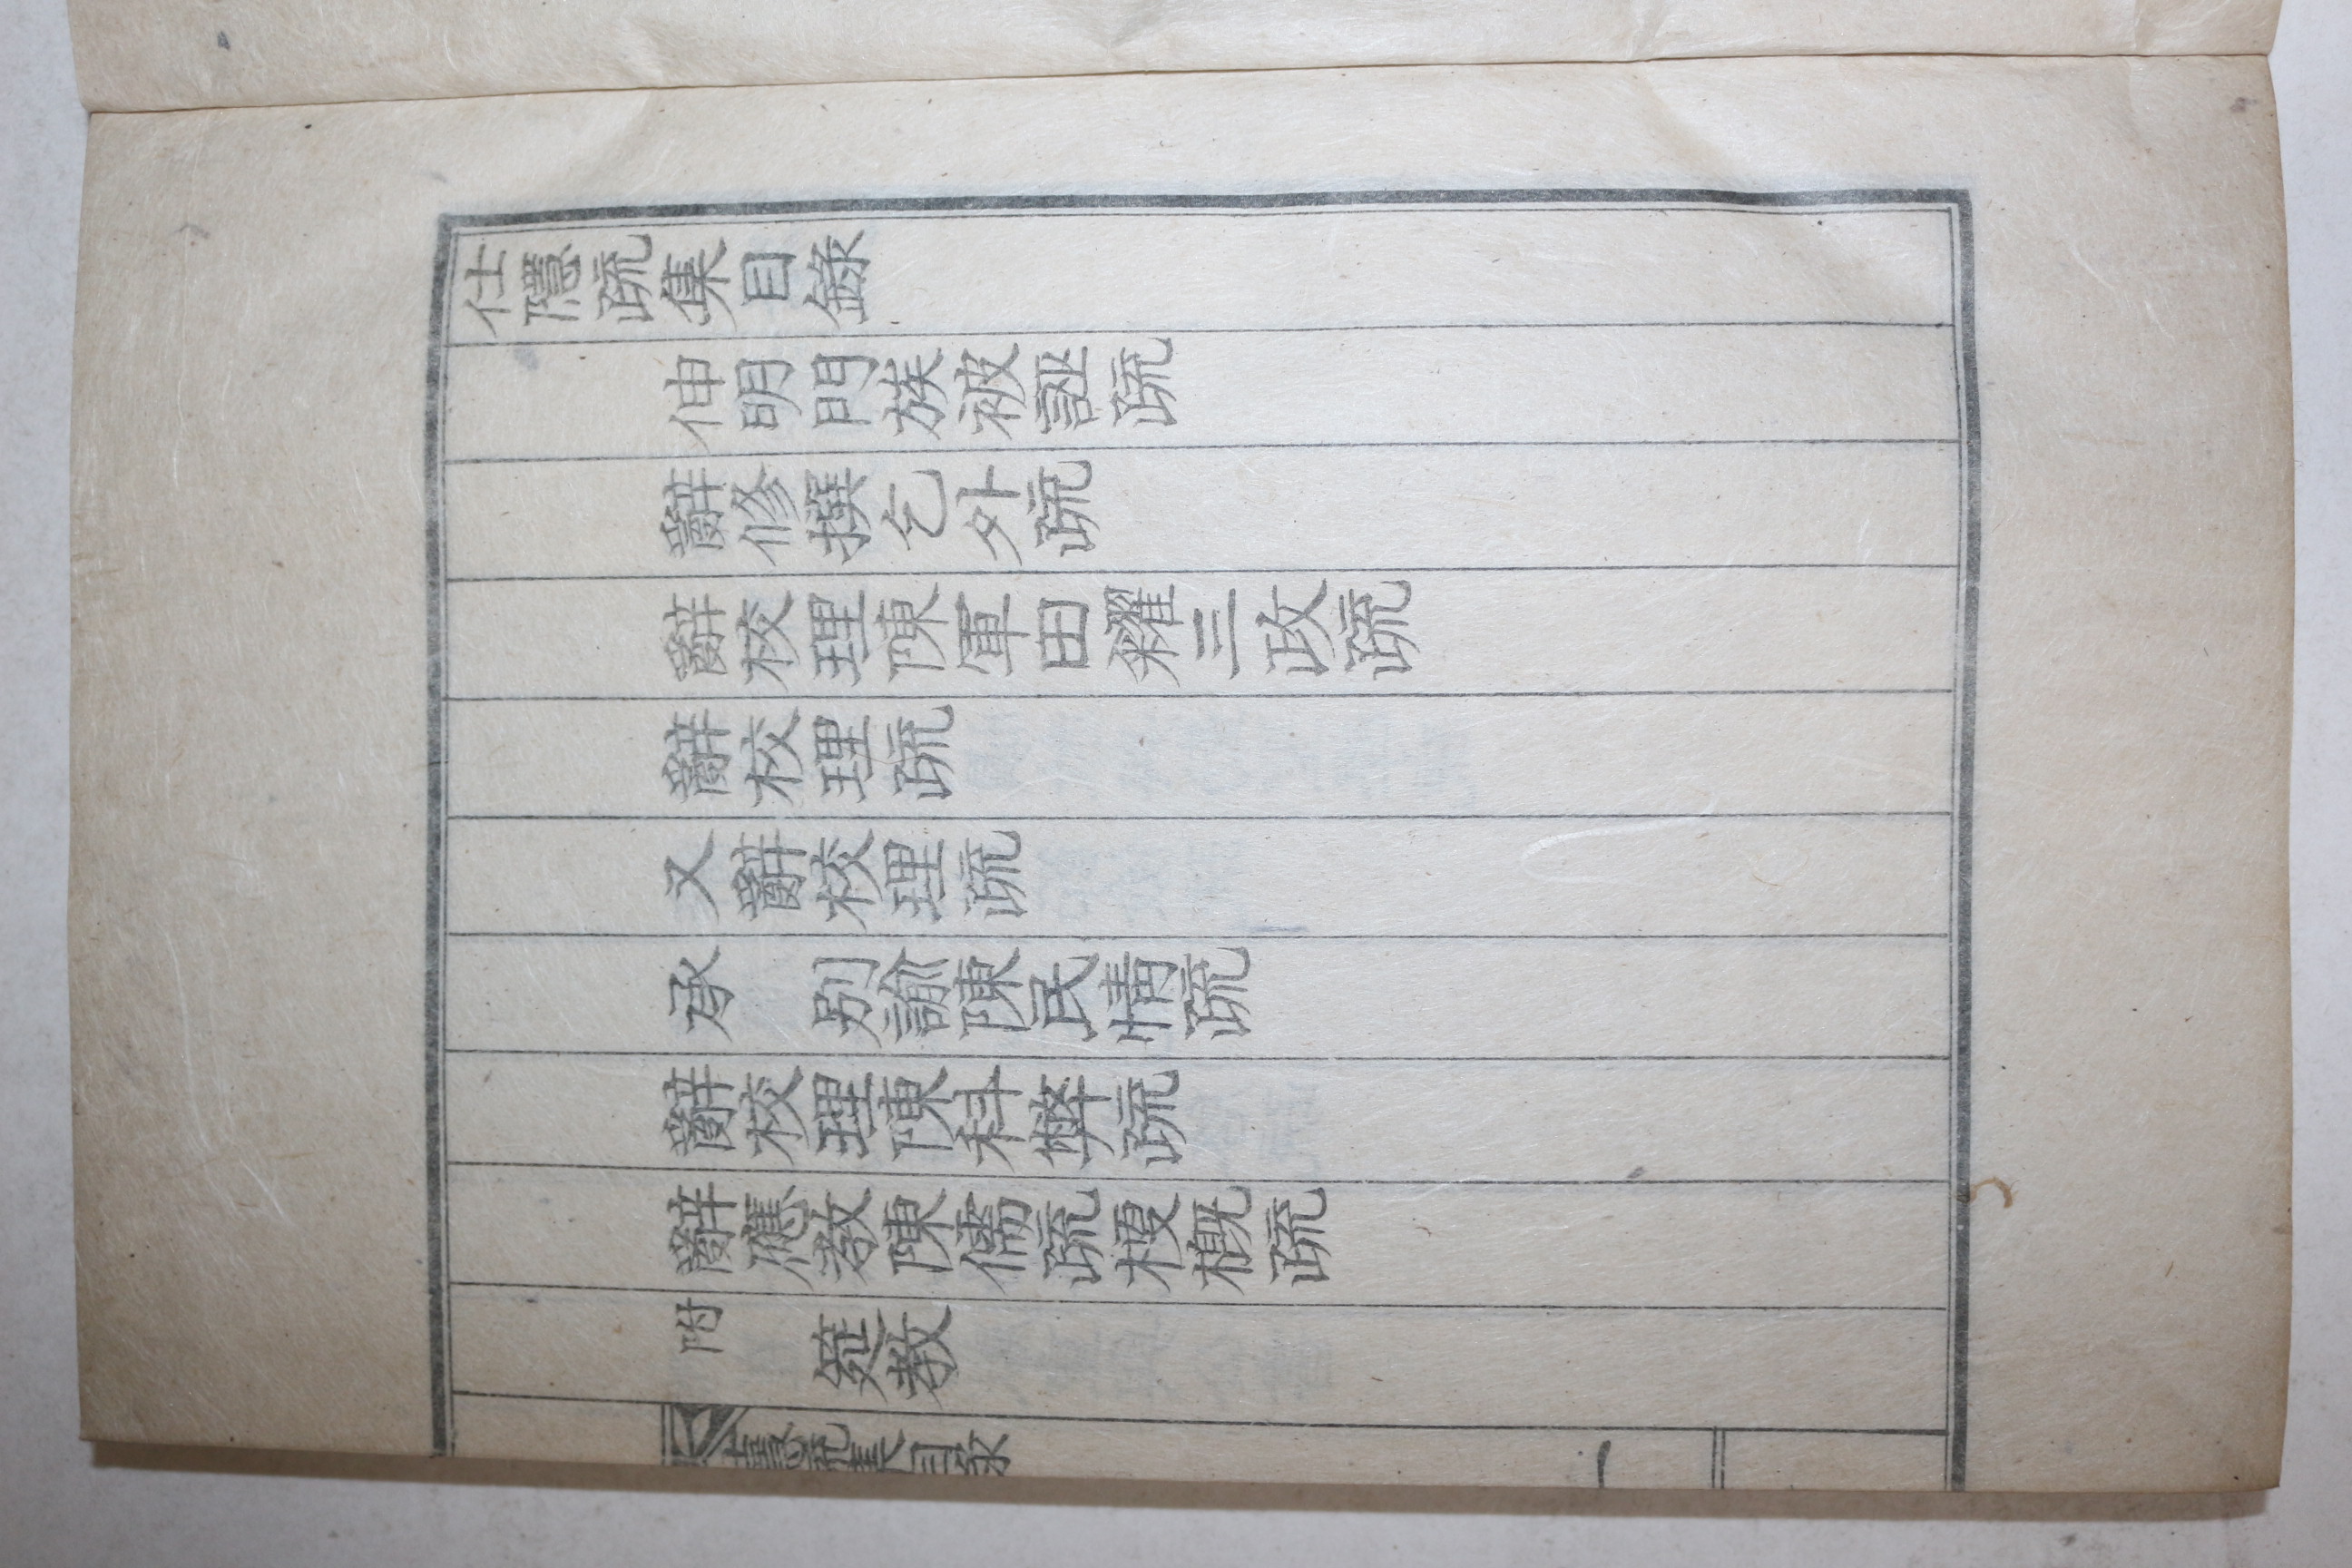 仕隱疏集目錄
伸明門族被誣疏
辭修撰乞外疏
辭校理陳軍田糴三政疏
辭校理疏
又辭校理疏
承 別諭陳民情疏
辭校理陳科弊疏
辭應敎陳儒疏梗槩疏
附 筵敎
仕隱疏集目錄 一